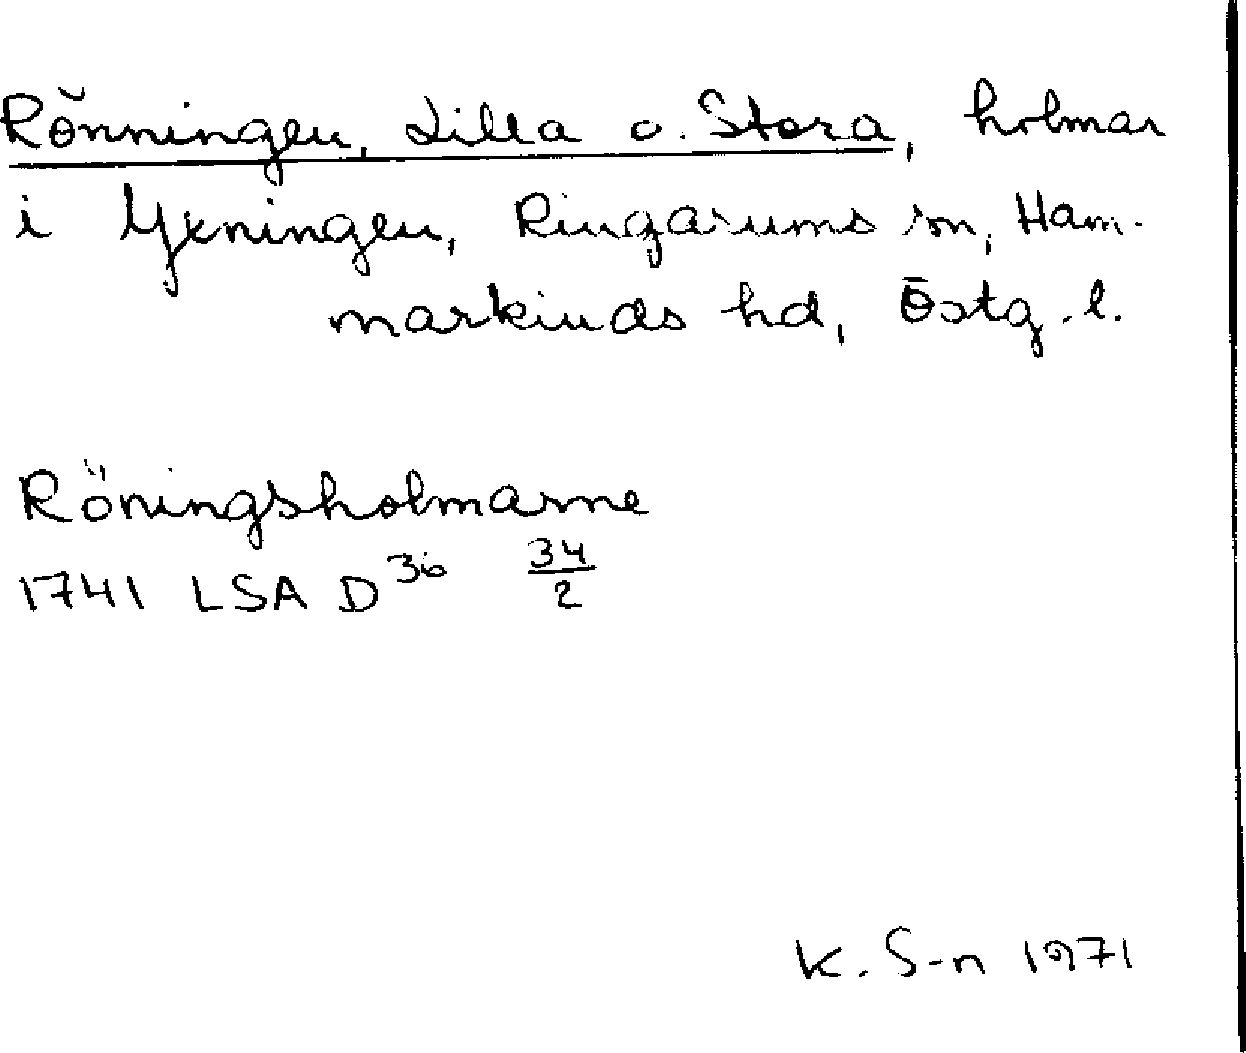 Rönningen, Lilla o. Stora, holmar
i Yxningen, Ringarums sn, Ham-
markinds hd, Östg.l.
Röningsholmarne
1741 LSA D 36 34/2
K. S-n 1971